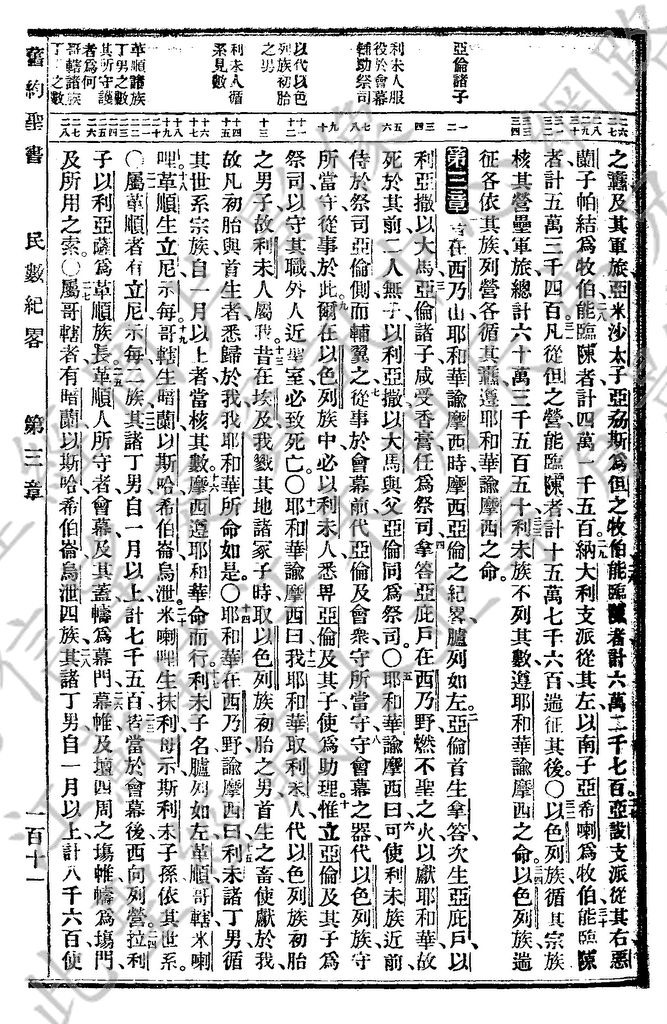 亞倫諸子
利未人服
役於會幕
輔助祭司
以代以色
列族初胎
之男
利未人循
見數
革順諸族
丁男之數
其所守護
者爲何
哥轄諸族
丁男之數
之纛及其軍旅亞米沙太子亞希以謝爲但之牧伯能臨陳者計六萬二千七百亞設支派從其右悪
蘭子帕結爲牧伯能臨陳者計四萬一千五百納大利支派從其左以南子亞希喇爲牧伯能臨陳
者計五萬三千四百凡從但之營能臨陳者計十五萬七千六百遄征其後〇以色列族循其宗族
核其營壘軍旅總計六十萬三千五百五十利未族不列其數遵耶和華諭摩西之命以色列族遄
征各依其族列營各循其纛遵耶和華諭摩西之命
第三章 在西乃山耶和華諭摩西時摩西亞倫之紀畧臚列如左亞倫首生拿答次生亞庇戶以
利亞撒以大馬亞倫諸子咸受香膏任爲祭司拿答亞庇戶在西乃野燃不聖之火以獻耶和華故
死於其前二人無子以利亞撒以大馬與父亞倫同爲祭司〇耶和華諭摩西曰可使利未族近前
侍於祭司亞倫側而輔翼之從事於會幕前代亞倫及會衆守所當守守會幕之器代以色列族守
所當守從事於此爾在以色列族中必以利未人悉畀亞倫及其子使爲助理惟立亞倫及其子爲
祭司以守其職外人近聖室必致死亡〇耶和華諭摩西曰我耶和華取利未人代以色列族初胎
之男子故利未人屬我昔在埃及我戮其地諸冢子時取以色列族初胎之男首生之畜使獻於我
故凡初胎與首生者悉歸於我我耶和華所命如是〇耶和華在西乃野諭摩西曰利未諸丁男循
其世系宗族自一月以上者當核其數摩西遵耶和華命而行利未子名臚列如左革順哥轄米喇
哩革順生立尼示每哥轄生暗蘭以斯哈希伯崙烏泄米喇哩生抹利母示斯利未子孫依其世系
〇屬革順者有立尼示每二族其諸丁男自一月以上計七千五百皆當於會幕後西向列營拉利
子以利亞薩爲革順族長革順人所守者會幕及其蓋幬爲幕門幕帷及壇四周之塲帷幬爲塲門
及所用之索〇屬哥轄者有暗蘭以斯哈希伯崙烏泄四族其諸丁男自一月以上計八千六百使
舊約聖書 民數紀畧 第三章 一百十一